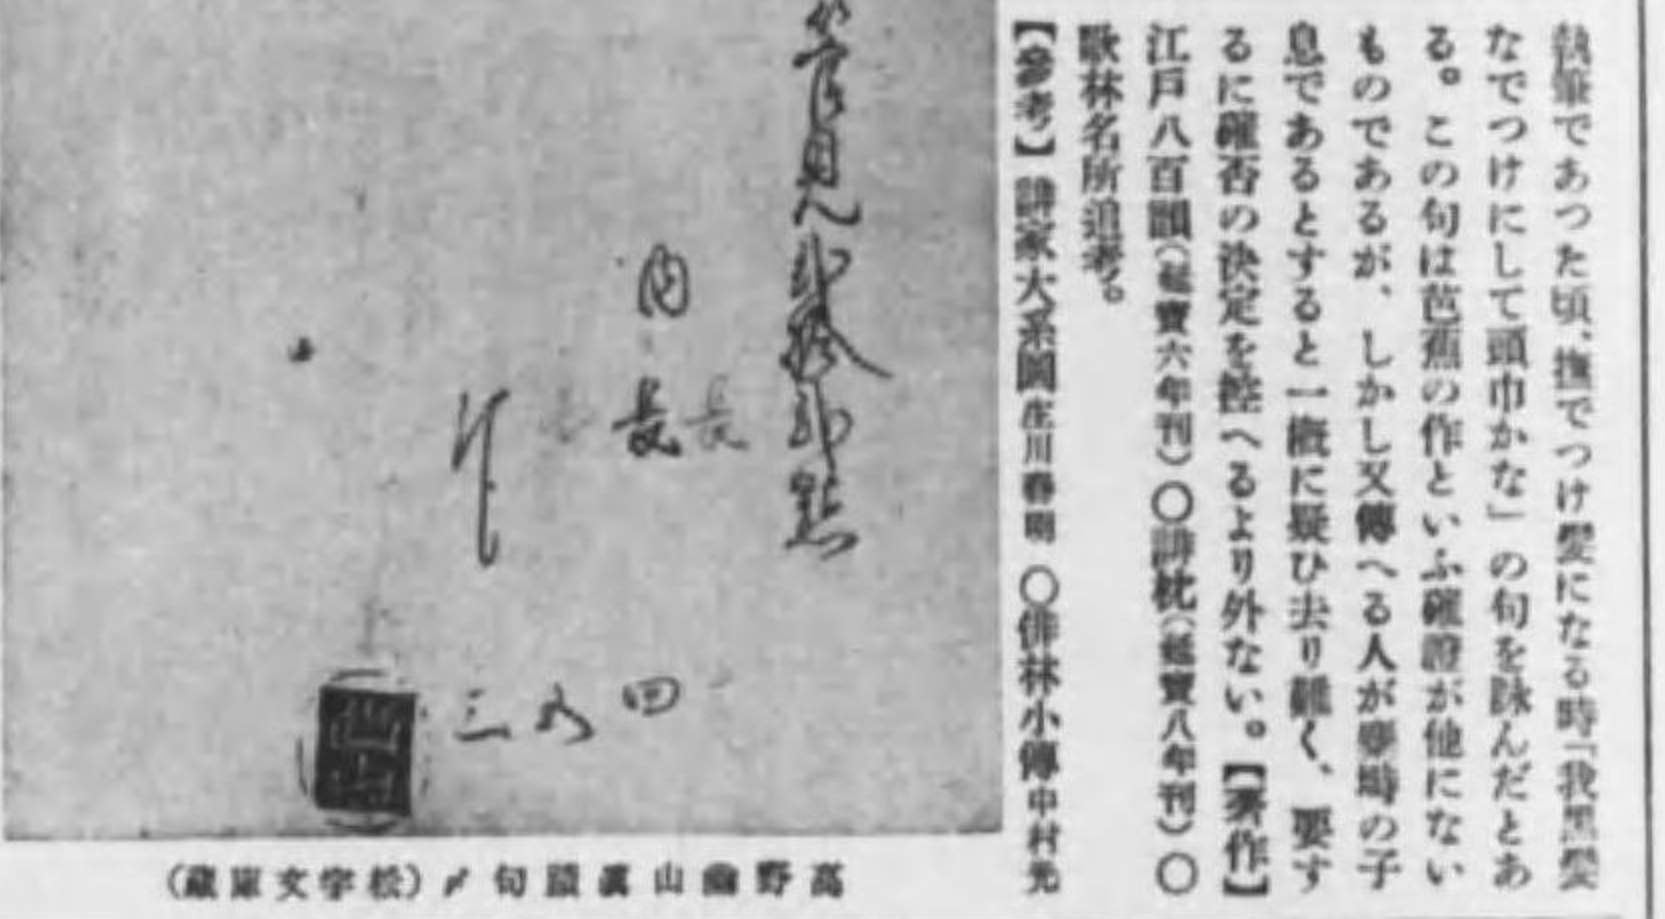 執筆であつた頃、撫でつけ髪になる時「我黒髪
なでつけにして頭巾かな」の句を詠んだとあ
る。この句は芭蕉の作といふ確證が他にない
ものであるが、しかし又傳へる人が幸時の子
息であるとすると一概に疑ひ去り難く、要す
るに確否の決定を控へるより外ない。【著作】
江戸八百韻(延寶六年刊)〇誹枕(延寶八年刊)〇
歌林名所追考。
【參考】誹家大系圖 庄川春明 〇俳林小傳 中村光
點
内
長 長
四
三
高野幽山眞蹟句〆(松宇文庫藏)